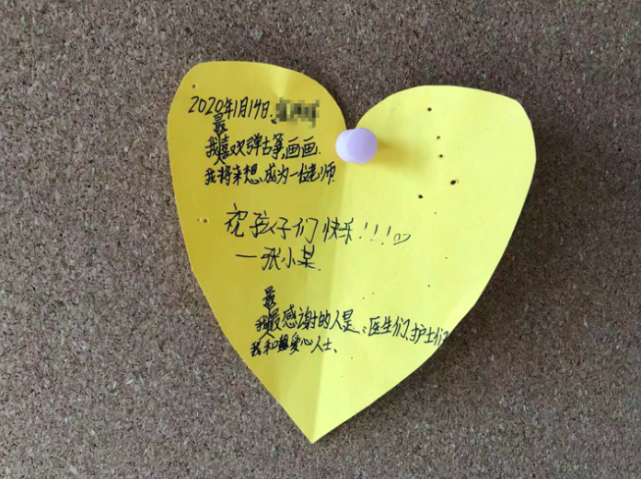 2020年1月14日
最
我喜欢弹古筝,画画.
我将来想,成为一位老师
祝孩子们快乐!!!♡
一张小某.
最
我最感谢的人是:医生们、护士们
和爱心人士、